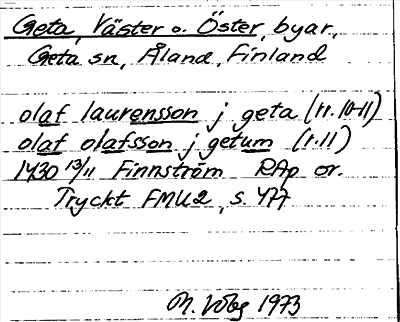 Geta, Väster o. Öster, byar,
Geta sn, Åland, Finland
olaf laurensson j geta (rr. 10-11)
olaf olafsson j getum (r. 11)
1430 13/11 Finnström RAp or.
Tryckt FMU2, s. 477
M. 1973